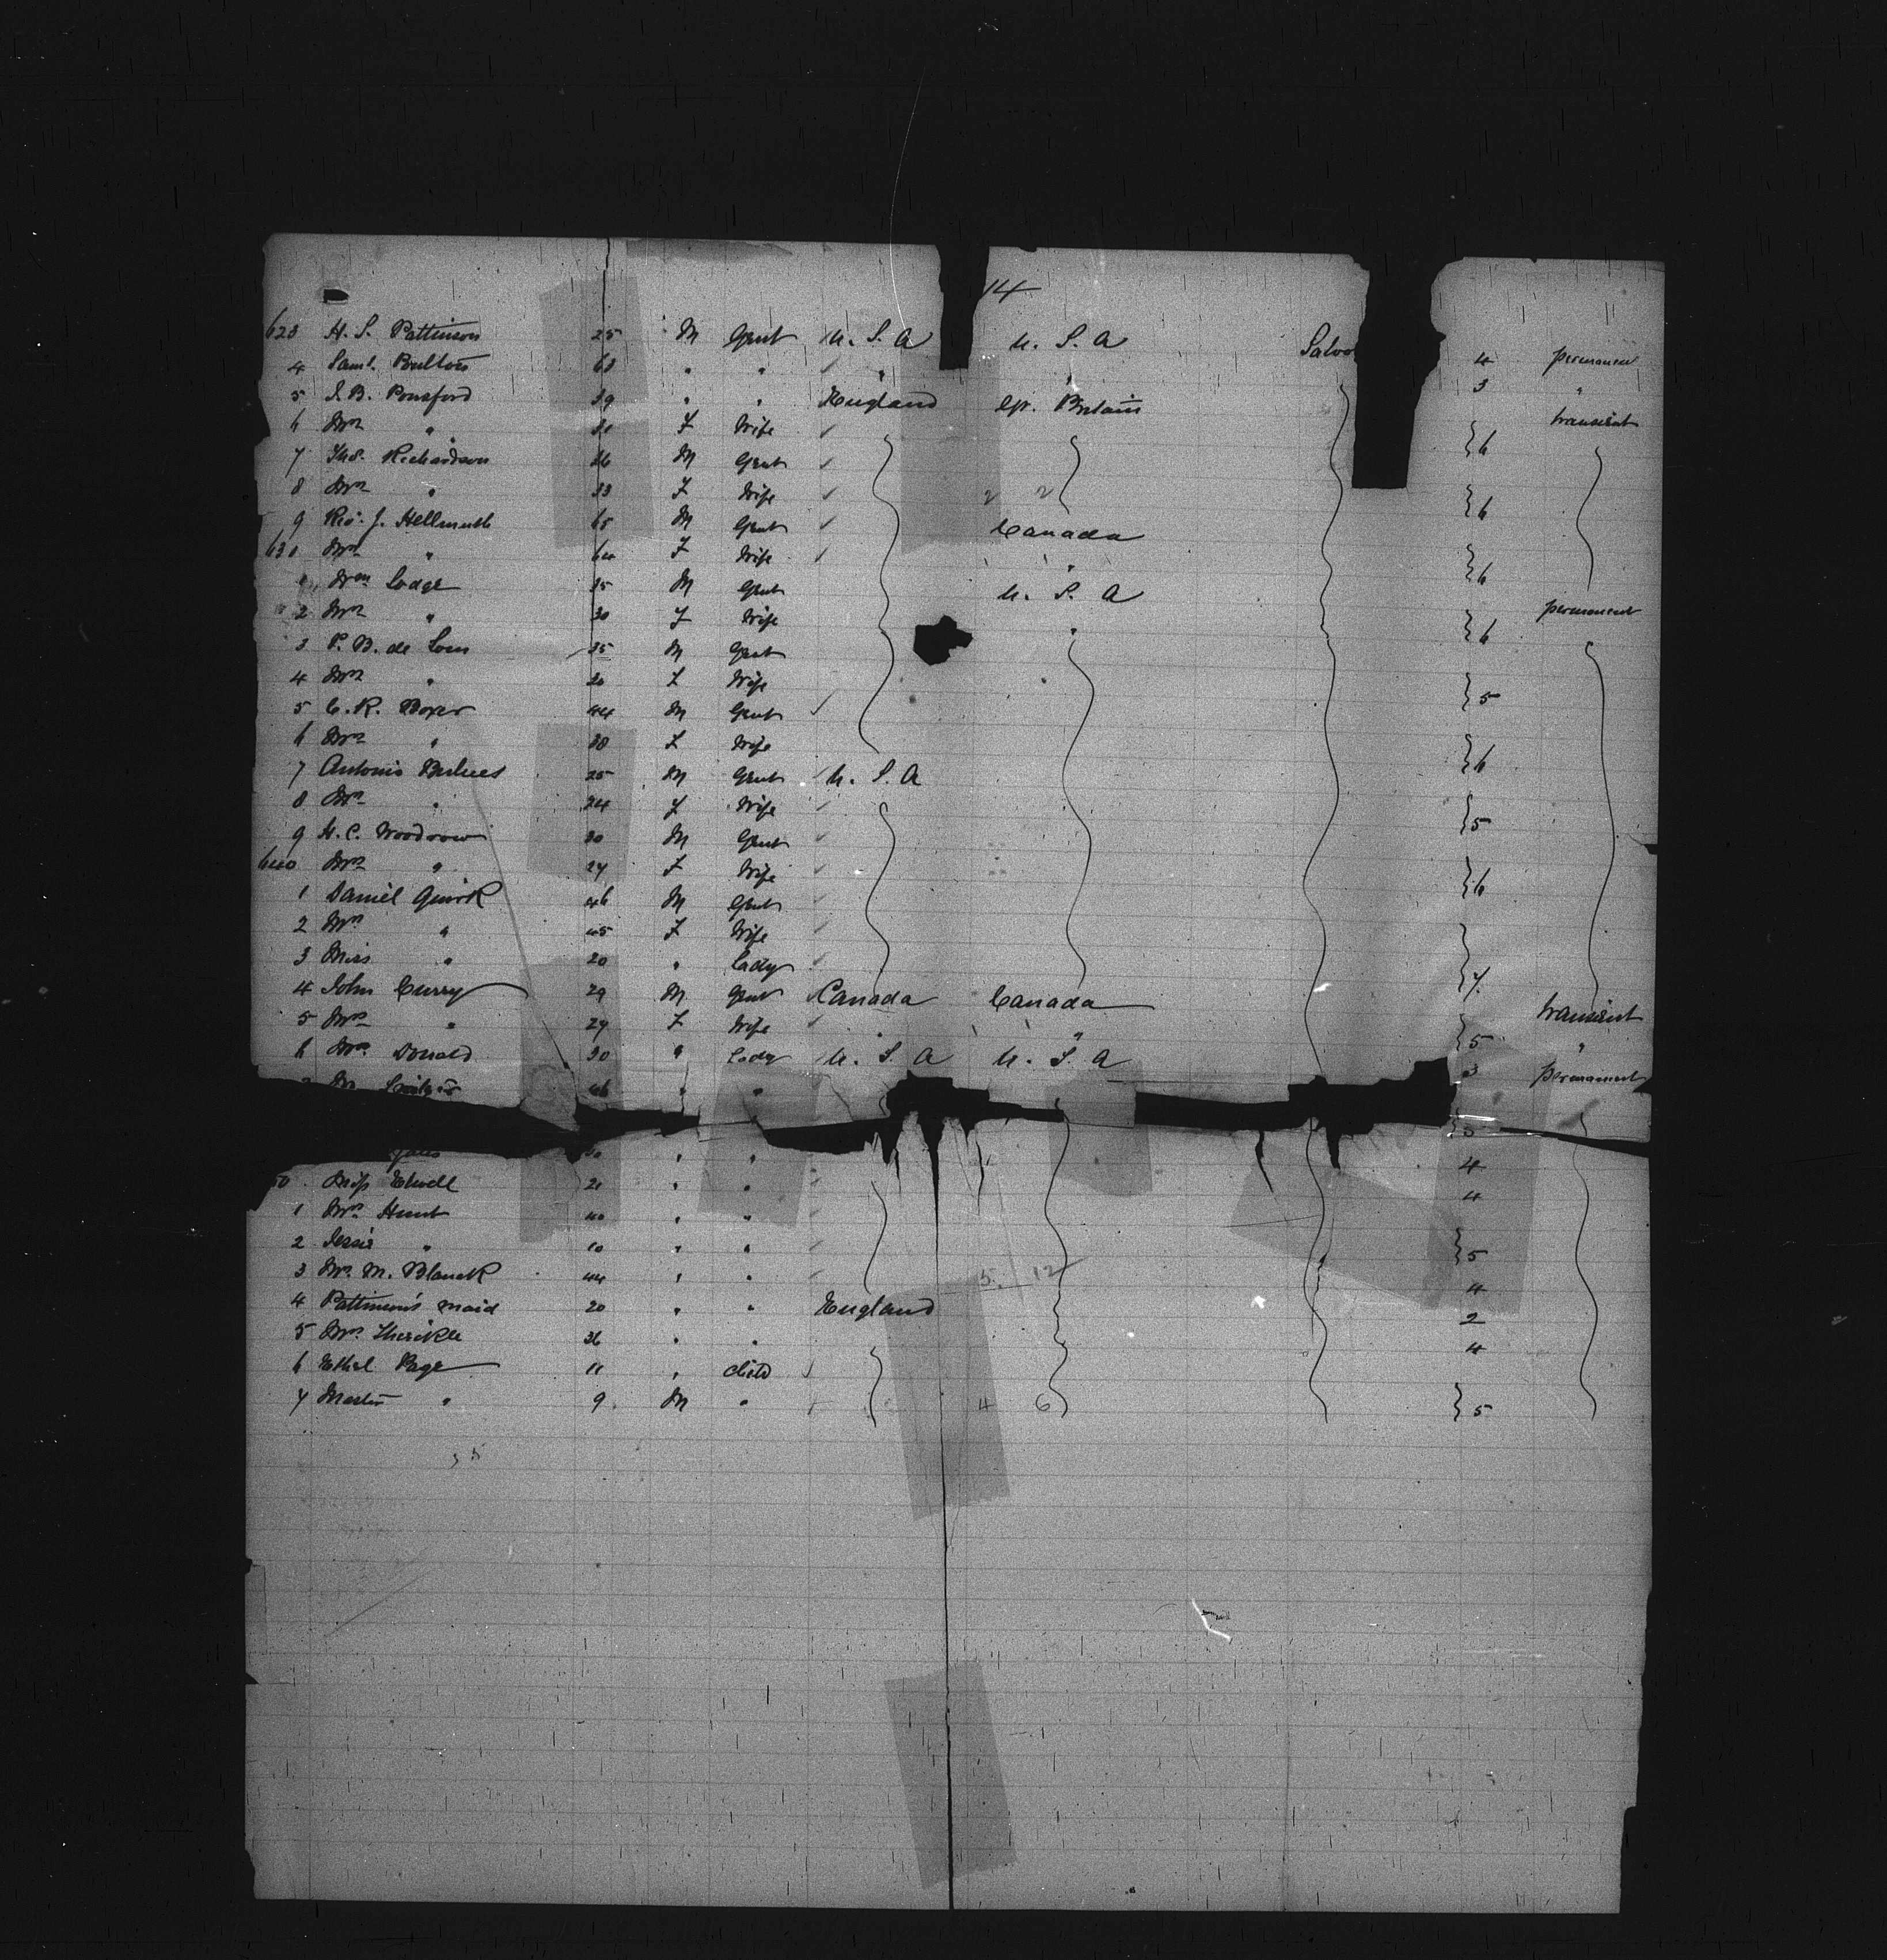 14
623 H. S. Pattinson 25 M Gent U. S. A U. S. A Saloo 4 permanent
4 Saml. Boulton 63 " " " " 3 "
5 J. B. Ponsford 39 " " England Gt. Britain transient
6 Mrs " 31 F Wife } 6
7 Thos. Richardson 36 M Gent
8 Mrs " 33 F Wife 2 2 } 6
9 Rev. J. Hellmuth 65 M Gent Canada
630 Mrs " 64 F Wife " } 6
1 Wm Lodge 35 M Gent U. S. A
2 Mrs " 30 F Wife " } 6 permanent
3 P. B. de Lom 35 M Gent
4 Mrs " 30 F Wife } 5
5 C. R. Boxer 44 M Gent
6 Mrs " 38 F Wife } 6
7 Antonio 25 M Gent U. S. A
8 Mrs " 24 F Wife } 5
9 H. C. Woodrow 30 M Gent
640 Mrs " 27 F Wife } 6
1 Daniel Quirk 46 M Gent
2 Mrs " 45 F Wife
3 Miss " 20 " Lady } 7
4 John Curry 29 M Gent Canada Canada transient
5 Mrs " 27 F Wife " " } 5 "
6 Mrs. Donald 30 " Lady U. S. A U. S. A 3 permanent
46 " "
5
30 " " 4
50 Miss Elwell 21 " " 4
1 Mrs Hunt 40 " "
2 Jessie " 10 " " } 5
3 Mrs. M. Blanck 44 " " 5 12 4
4 Pattinson's maid 20 " " England 2
5 Mrs. 36 " " 4
6 Ethel Page 11 " child
7 Master " 9 M " 4 6 } 5
35